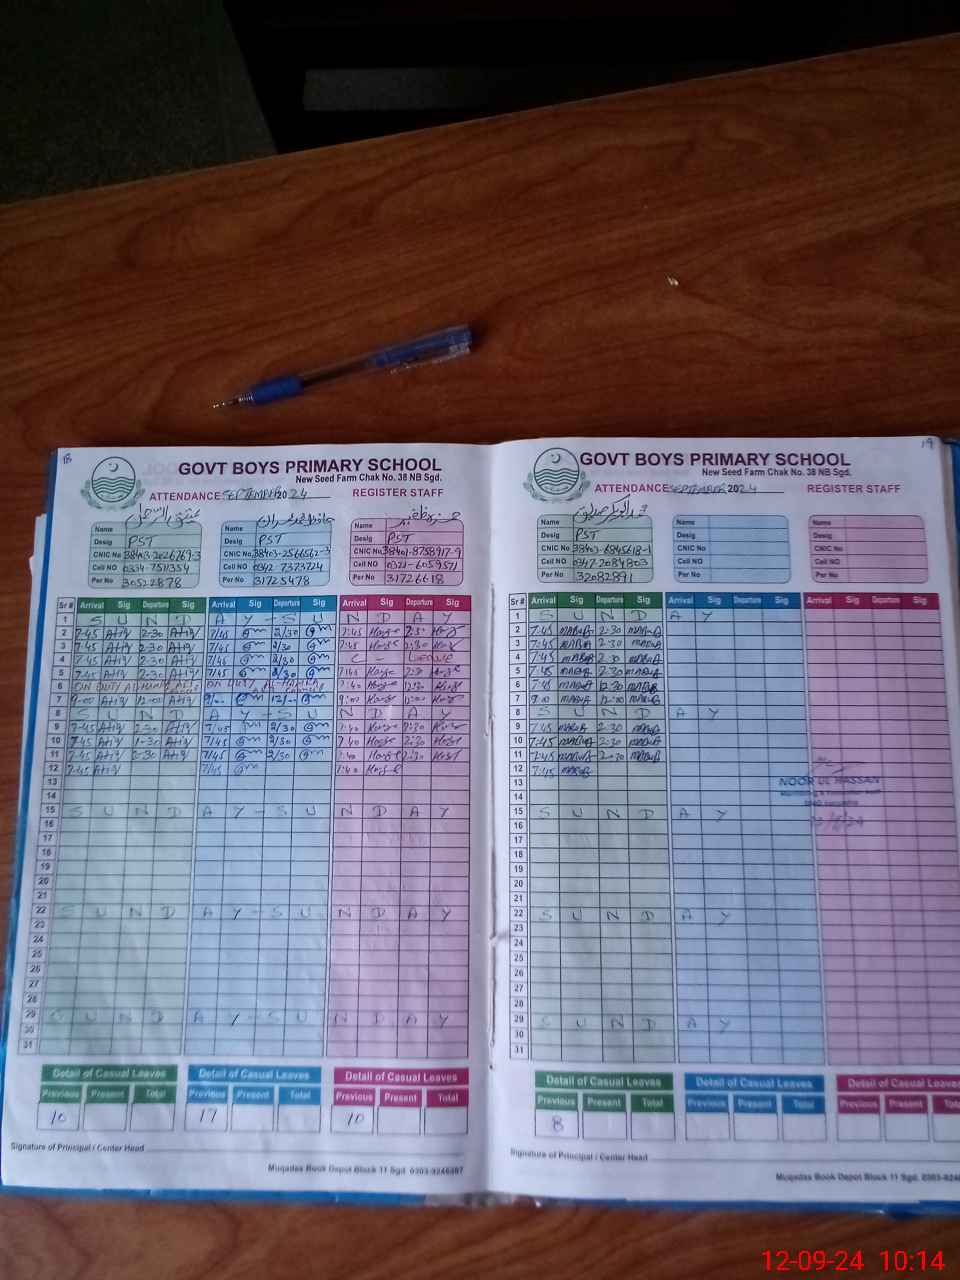 18
GOVT BOYS PRIMARY SCHOOL
New Seed Farm Chak No. 38 NB Sgd.
ATTENDANCE SEPTEMBER 2024 REGISTER STAFF
Name
Desig PST
CNIC No 38403-2026769-3
Cell NO 0334-7511354
Per No 30522878
Name
Desig PST
CNIC No 38403-2566562-3
Cell NO 0342-7373724
Per No 31725478
Name
Desig PST
CNIC No 38401-8758917-9
Cell NO 0321-6059571
Per No 31726618
Sr # Arrival Sig Departure Sig Arrival Sig Departure Sig Arrival Sig Departure Sig
1 S U N D A Y - S U N D A Y
2 7-45 Atiq 2-30 Atiq 7/45 2/30 7:45
3 7-45 Atiq 2-30 Atiq 7/45 2/30 7:45 2:30
4 7-45 Atiq 2-30 Atiq 7/45 2/30 C - Leave
5 7-45 Atiq 2-30 Atiq 7/45 2/30 7:45
6 ON DUTY ON DUTY 7:40 12:30
7 9-00 Atiq 12-00 Atiq 9/00 12/00 9:00 12:00
8 S U N D A Y - S U N D A Y
9 7-45 Atiq 2-30 Atiq 7/45 2/30 7:40 2:30
10 7-45 Atiq 1-30 Atiq 7/45 2/30 7:40 2:30
11 7-45 Atiq 2-30 Atiq 7/45 2/30 7:40 2:30
12 7-45 Atiq 7/45 7:40
13
14
15 S U N D A Y - S U N D A Y
16
17
18
19
20
21
22 S U N D A Y - S U N D A Y
23
24
25
26
27
28
29 S U N D A Y - S U N D A Y
30
31
Detail of Casual Leaves Detail of Casual Leaves Detail of Casual Leaves
Previous Present Total Previous Present Total Previous Present Total
10 17 10
Signature of Principal / Center Head
Muqadas Book Depot Block 11 Sgd. 0303-9246387
19
GOVT BOYS PRIMARY SCHOOL
New Seed Farm Chak No. 38 NB Sgd.
ATTENDANCE SEPTEMBER 2024 REGISTER STAFF
Name
Desig PST
CNIC No 38403-6845618-1
Cell NO 0347-2084803
Per No 32082891
Name
Desig
CNIC No
Cell NO
Per No
Name
Desig
CNIC No
Cell NO
Per No
Sr # Arrival Sig Departure Sig Arrival Sig Departure Sig Arrival Sig Departure Sig
1 S U N D A Y
2 7:45 2-30
3 7:45 2-30
4 7:45 2-30
5 7:45 2-30
6 7:45 12-30
7 9:00 12-00
8 S U N D A Y
9 7:45 2-30
10 7:45 2-30
11 7:45 2-30
12 7:45
13
14
15 S U N D A Y
16
17
18
19
20
21
22 S U N D A Y
23
24
25
26
27
28
29 S U N D A Y
30
31
NOOR UL HASSAN
Detail of Casual Leaves Detail of Casual Leaves Detail of Casual Leaves
Previous Present Total Previous Present Total Previous Present
8
Signature of Principal / Center Head
Muqadas Book Depot Block 11 Sgd.
12-09-24 10:14